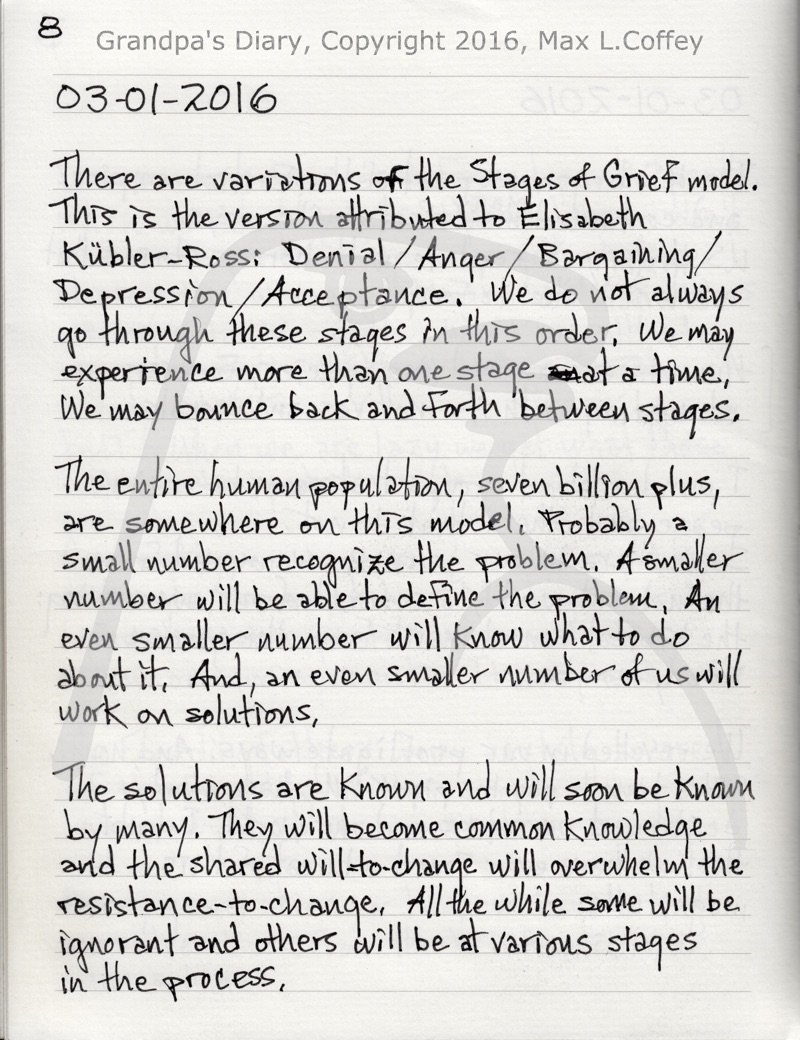 8
Grandpa's Diary, Copyright 2016, Max L.Coffey
03-01-2016
There are variations of the Stages of Grief model.
This is the version attributed to Elisabeth
Kübler-Ross: Denial/Anger/Bargaining/
Depression/Acceptance. We do not always
go through these stages in this order. We may
experience more than one stage at a time.
We may bounce back and forth between stages.
The entire human population, seven billion plus,
are somewhere on this model. Probably a
small number recognize the problem. A smaller
number will be able to define the problem. An
even smaller number will know what to do
about it. And, an even smaller number of us will
work on solutions.
The solutions are known and will soon be known
by many. They will become common knowledge
and the shared will-to-change will overwhelm the
resistance-to-change. All the while some will be
ignorant and others will be at various stages
in the process.